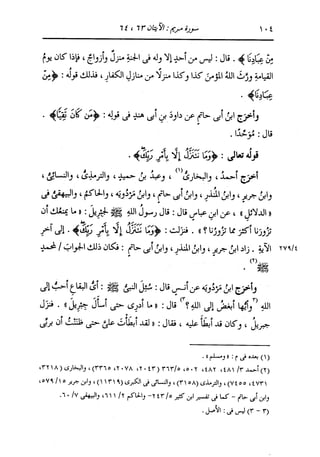 ١٠٤ سورة مريم : الآيتان ٦٣ ، ٦٤
مِنْ عِبَادِنَا﴾ . قال : ليس من أحدٍ إلا وله فى الجنةِ منزلٌ وأزواجٌ ، فإذا كان يومُ
القيامةِ ورَّث اللهُ المؤمنَ كذا وكذا منزلًا من منازلِ الكفارِ ، فذلك قولُه : ﴿مِنْ
عِبَادِنَا﴾ .
وأخرَج ابنُ أبى حاتمٍ عن داودَ بنِ أبى هندٍ فى قولِه : ﴿مَن كَانَ تَقِيًّا﴾ .
قال : مُوَحِّدًا .
قوله تعالى : ﴿وَمَا نَتَنَزَّلُ إِلَّا بِأَمْرِ رَبِّكَ﴾ .
أخرَج أحمدُ ، والبخارىُّ(١) ، وعبدُ بنُ حميدٍ ، والترمذىُّ ، والنسائىُّ ،
وابنُ جريرٍ ، وابنُ المنذرِ ، وابنُ أبى حاتمٍ ، وابنُ مَرْدُويَه ، والحاكمُ ، والبيهقىُّ فى
« الدلائلِ » ، عن ابنِ عباسٍ قال : قال رسولُ اللهِ ﷺ لجبريلَ : « ما يمنعُك أن
تزورَنا أكثرَ مما تزورُنا ؟ » . فنزَلت : ﴿وَمَا نَتَنَزَّلُ إِلَّا بِأَمْرِ رَبِّكَ﴾ . إلى آخرِ
٢٧٩/٤ الآيةِ . زاد ابنُ جريرٍ ، وابنُ المنذرِ ، وابنُ أبى حاتمٍ : فكان ذلك الجوابَ / لمحمدٍ
ﷺ(٢) .
وأخرَج ابنُ مَرْدُويَه عن أنسٍ قال : سُئِل النبىُّ ﷺ : أىُّ البقاعِ أحبُّ إلى
اللهِ (٣وأيُّها أبغضُ إلى اللهِ٣) ؟ قال : « ما أدرى حتى أسألَ جبريلَ » . فنزَل
جبريلُ ، وكان قد أبطَأ عليه ، فقال : « لقد أبطأتَ علىَّ حتى ظننتُ أن بربِّى
(١) بعده فى م : « ومسلم » .
(٢) أحمد ٤٨١/٣ ، ٤٨٢ ، ٥٠٢ ، ٣٦٣/٥ (٢٠٤٣ ، ٢٠٧٨ ، ٣٣٦٥) ، والبخارى (٣٢١٨ ،
٤٧٣١ ، ٧٤٥٥) ، والترمذى (٣١٥٨) ، والنسائى فى الكبرى (١١٣١٩) ، وابن جرير ٥٧٩/١٥ ،
وابن أبى حاتم - كما فى تفسير ابن كثير ٢٤٣/٥ - والحاكم ٦١١/٢ ، والبيهقى ٦٠/٧ .
(٣ - ٣) ليس فى : الأصل .